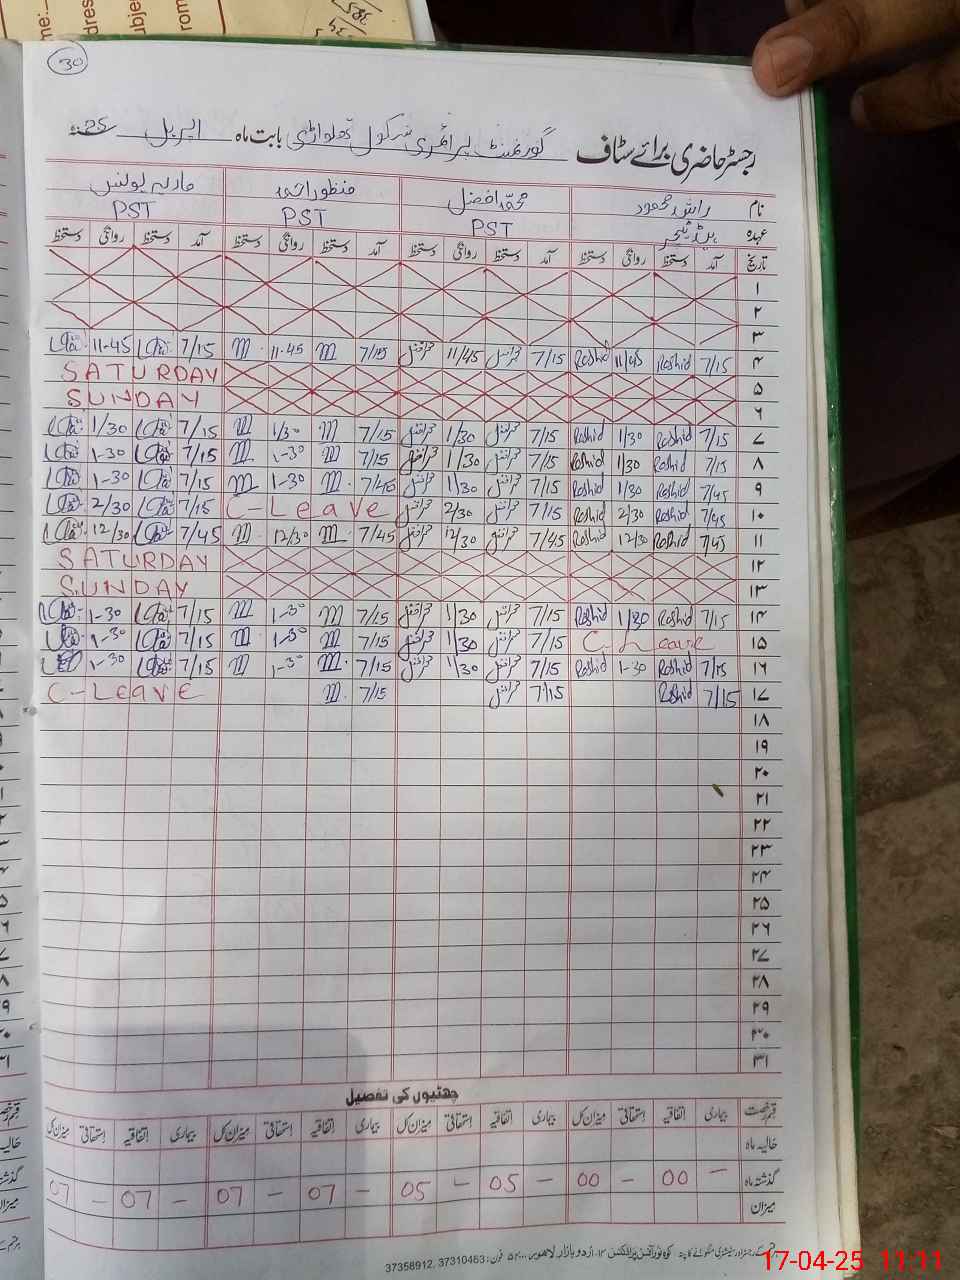 30
رجسٹر حاضری برائے سٹاف گورنمنٹ پرائمری سکول بابت ماہ اپریل 25
نام راشد محمود محمد افضل منظور احمد ماریہ یونس
عہدہ ہیڈ ٹیچر PST PST PST
تاریخ آمد دستخط روانگی دستخط آمد دستخط روانگی دستخط آمد دستخط روانگی دستخط آمد دستخط روانگی دستخط
۱
۲
۳
۴ 7/15 Rashid 11/45 Rashid 7/15 محمد افضل 11/45 محمد افضل 7/15 m 11-45 m 7/15 11-45
۵ SATURDAY
۶ SUNDAY
۷ 7/15 Rashid 1/30 Rashid 7/15 محمد افضل 1/30 محمد افضل 7/15 m 1/30 m 7/15 1/30
۸ 7/15 Rashid 1/30 Rashid 7/15 محمد افضل 1/30 محمد افضل 7/15 m 1-30 m 7/15 1-30
۹ 7/45 Rashid 1/30 Rashid 7/15 محمد افضل 1/30 محمد افضل 7/45 m 1-30 m 7/15 1-30
۱۰ 7/45 Rashid 2/30 Rashid 7/15 محمد افضل 2/30 محمد افضل C-Leave 7/15 2/30
۱۱ 7/45 Rashid 12/30 Rashid 7/45 محمد افضل 12/30 محمد افضل 7/45 m 12/30 m 7/45 12/30
۱۲ SATURDAY
۱۳ SUNDAY
۱۴ 7/15 Rashid 1/30 Rashid 7/15 محمد افضل 1/30 محمد افضل 7/15 m 1-30 m 7/15 1-30
۱۵ C-Leave 7/15 محمد افضل 1/30 محمد افضل 7/15 m 1-30 m 7/15 1-30
۱۶ 7/15 Rashid 1-30 Rashid 7/15 محمد افضل 1/30 محمد افضل 7/15 m 1-30 m 7/15 1-30
۱۷ 7/15 Rashid 7/15 محمد افضل 7/15 m C-Leave
۱۸
۱۹
۲۰
۲۱
۲۲
۲۳
۲۴
۲۵
۲۶
۲۷
۲۸
۲۹
۳۰
۳۱
چھٹیوں کی تفصیل
قسم رخصت بیماری اتفاقیہ استحقاقی میزان کل بیماری اتفاقیہ استحقاقی میزان کل بیماری اتفاقیہ استحقاقی میزان کل بیماری اتفاقیہ استحقاقی میزان کل
حالیہ ماہ
گذشتہ ماہ – 00 – 00 – 05 – 05 – 07 – 07 – 07 – 07
میزان
اردو بازار لاہور فون: 37310463, 37358912
17-04-25 11:11